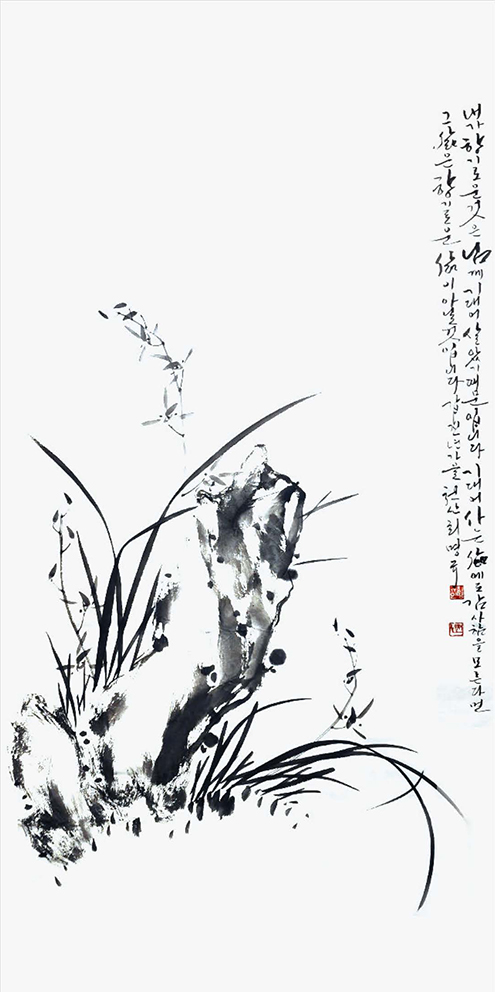 내가 향기로운 것은 님께 기대어 살았기 때문입니다 기대어 사는 에도 감사함을 모른다면
그 은 향기로운 이 아닐 것입니다 갑진년 가을 천산